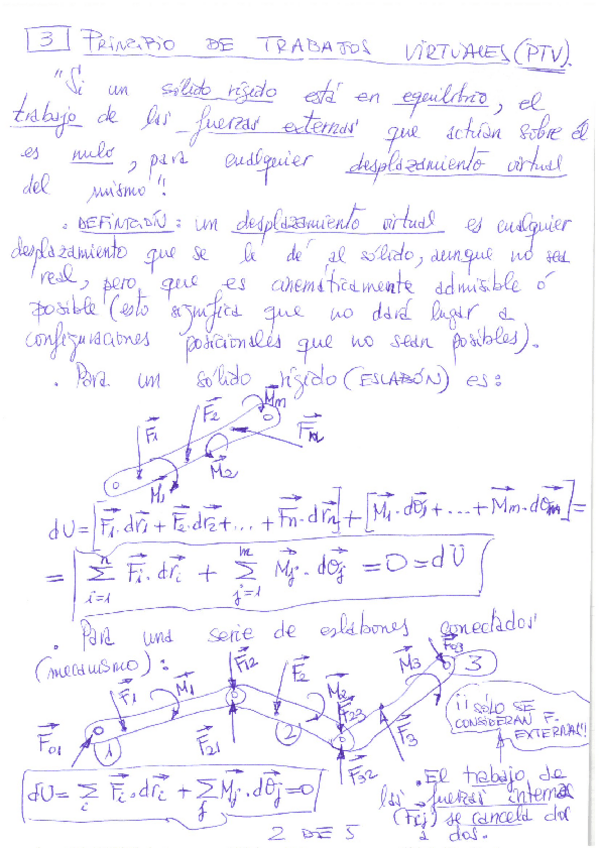 3 PRINCIPIO DE TRABAJOS VIRTUALES (PTV).
"Si un sólido rígido está en equilibrio, el
trabajo de las fuerzas externas que actúan sobre él
es nulo, para cualquier desplazamiento virtual
del mismo"!
. DEFINICIÓN: un desplazamiento virtual es cualquier
desplazamiento que se le dé al sólido, aunque no sea
real, pero que es cinemáticamente admisible ó
posible (esto significa que no dará lugar a
configuraciones posicionales que no sean posibles).
. Para un sólido rígido (ESLABÓN) es:
F1 F2 Mm Fn
M1 M2
dU = [F1·dr1 + F2·dr2 + ... + Fn·drn] + [M1·dθ1 + ... + Mm·dθm] =
= Σ(i=1, n) Fi·dri + Σ(j=1, m) Mj·dθj = 0 = dU
. Para una serie de eslabones conectados
(mecanismo):
F01 F1 M1 F12 F21 F2 M2 F23 F32 F3 M3 F03
1 2 3
¡¡SÓLO SE
CONSIDERAN F.
EXTERNAS!!
dU = Σi Fi·dri + Σj Mj·dθj = 0
. El trabajo de
las fuerzas internas
(Fij) se cancela dos
a dos.
2 DE 5